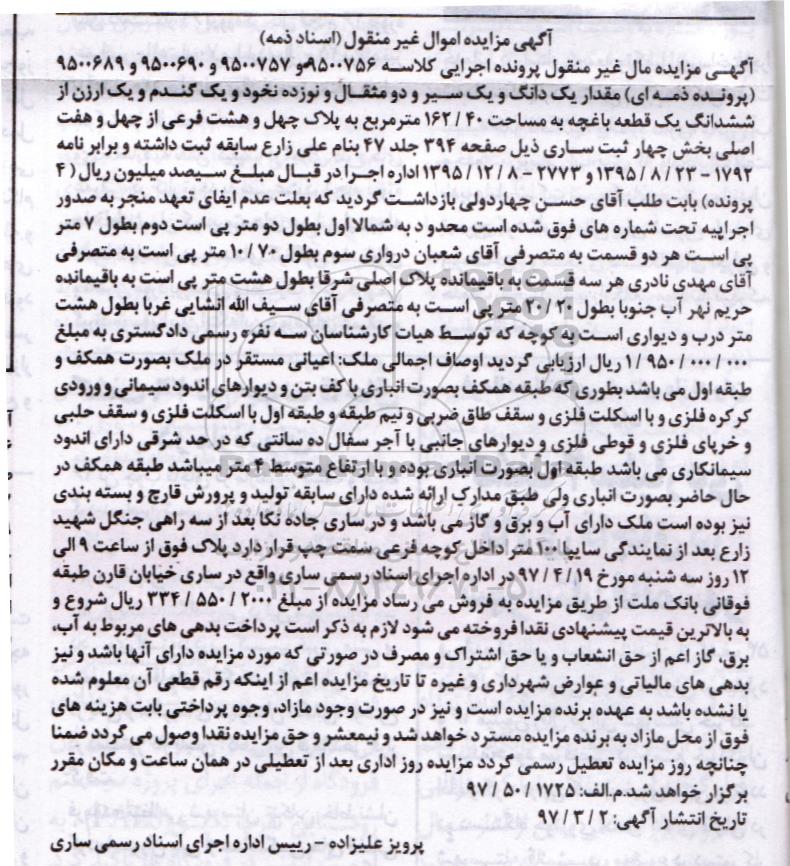 آگهی مزایده اموال غیر منقول (اسناد ذمه)
آگهی مزایده مال غیر منقول پرونده اجرایی کلاسه ۹۵۰۰۷۵۶و ۹۵۰۰۷۵۷ و ۹۵۰۰۶۹۰ و ۹۵۰۰۶۸۹
(پرونده ذمه ای) مقدار یک دانگ و یک سیر و دو مثقال و نوزده نخود و یک گندم و یک ارزن از
ششدانگ یک قطعه باغچه به مساحت ۱۶۲/۴۰ مترمربع به پلاک چهل و هشت فرعی از چهل و هفت
اصلی بخش چهار ثبت ساری ذیل صفحه ۳۹۴ جلد ۴۷ بنام علی زارع سابقه ثبت داشته و برابر نامه
۱۷۹۲ - ۱۳۹۵/۸/۲۳ و ۲۷۷۳ - ۱۳۹۵/۱۲/۸ اداره اجرا در قبال مبلغ سیصد میلیون ریال (۴
پرونده) بابت طلب آقای حسن چهاردولی بازداشت گردید که بعلت عدم ایفای تعهد منجر به صدور
اجراییه تحت شماره های فوق شده است محدود به شمالا اول بطول دو متر پی است دوم بطول ۷ متر
پی است هر دو قسمت به متصرفی آقای شعبان درواری سوم بطول ۱۰/۷۰ متر پی است به متصرفی
آقای مهدی نادری هر سه قسمت به باقیمانده پلاک اصلی شرقا بطول هشت متر پی است به باقیمانده
حریم نهر آب جنوبا بطول متر پی است به متصرفی آقای سیف الله انشایی غربا بطول هشت
متر درب و دیواری است به کوچه که توسط هیات کارشناسان سه نفره رسمی دادگستری به مبلغ
۱/۹۵۰/۰۰۰/۰۰۰ ریال ارزیابی گردید اوصاف اجمالی ملک: اعیانی مستقر در ملک بصورت همکف و
طبقه اول می باشد بطوری که طبقه همکف بصورت انباری با کف بتن و دیوارهای اندود سیمانی و ورودی
کرکره فلزی و با اسکلت فلزی و سقف طاق ضربی و نیم طبقه و طبقه اول با اسکلت فلزی و سقف حلبی
و خرپای فلزی و قوطی فلزی و دیوارهای جانبی با آجر سفال ده سانتی که در حد شرقی دارای اندود
سیمانکاری می باشد طبقه اول بصورت انباری بوده و با ارتفاع متوسط ۴ متر میباشد طبقه همکف در
حال حاضر بصورت انباری ولی طبق مدارک ارائه شده دارای سابقه تولید و پرورش قارچ و بسته بندی
نیز بوده است ملک دارای آب و برق و گاز می باشد و در ساری جاده نکا بعد از سه راهی جنگل شهید
زارع بعد از نمایندگی سایپا ۱۰۰ متر داخل کوچه فرعی سمت چپ قرار دارد پلاک فوق از ساعت ۹ الی
۱۲ روز سه شنبه مورخ ۹۷/۴/۱۹ در اداره اجرای اسناد رسمی ساری واقع در ساری خیابان قارن طبقه
فوقانی بانک ملت از طریق مزایده به فروش می رساد مزایده از مبلغ ۳۳۴/۵۵۰/۲۰۰۰ ریال شروع و
به بالاترین قیمت پیشنهادی نقدا فروخته می شود لازم به ذکر است پرداخت بدهی های مربوط به آب،
برق، گاز اعم از حق انشعاب و یا حق اشتراک و مصرف در صورتی که مورد مزایده دارای آنها باشد و نیز
بدهی های مالیاتی و عوارض شهرداری و غیره تا تاریخ مزایده اعم از اینکه رقم قطعی آن معلوم شده
یا نشده باشد به عهده برنده مزایده است و نیز در صورت وجود مازاد، وجوه پرداختی بابت هزینه های
فوق از محل مازاد به برنده مزایده مسترد خواهد شد و نیمعشر و حق مزایده نقدا وصول می گردد ضمنا
چنانچه روز مزایده تعطیل رسمی گردد مزایده روز اداری بعد از تعطیلی در همان ساعت و مکان مقرر
برگزار خواهد شد. م.الف: ۹۷/۵۰/۱۷۲۵
تاریخ انتشار آگهی: ۹۷/۳/۲
پرویز علیزاده - رییس اداره اجرای اسناد رسمی ساری